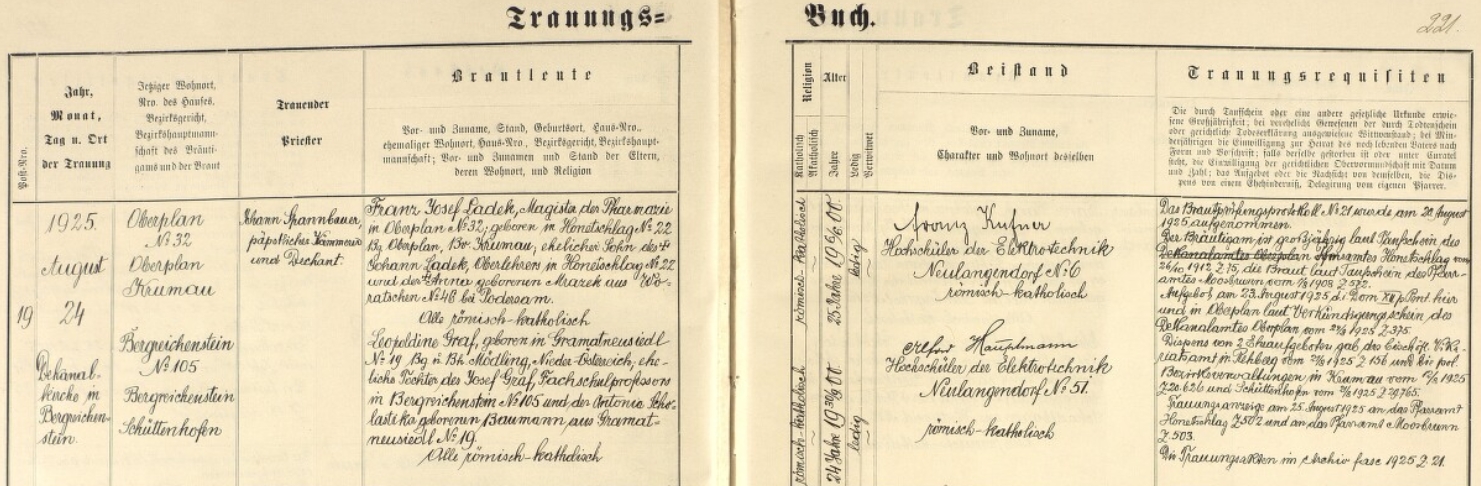 Trauungs=
Buch.
221.
Post-Nro.
Jahr,
Monat,
Tag u. Ort
der Trauung
Jetziger Wohnort,
Nro. des Hauses,
Bezirksgericht,
Bezirkshauptmann-
schaft des Bräuti-
gams und der Braut
Trauender
Priester
Brautleute
Vor- und Zuname, Stand, Geburtsort, Haus-Nro.,
ehemaliger Wohnort, Haus-Nro., Bezirksgericht, Bezirkshaupt-
mannschaft; Vor- und Zunamen und Stand der Eltern,
deren Wohnort, und Religion
19
1925.
August
24
Dekanal-
kirche in
Bergreichen-
stein.
Oberplan
No 32
Oberplan
Krumau
Bergreichenstein
No 105
Bergreichenstein
Schüttenhofen
Johann Spannbauer,
päpstlicher Kämmerer
und Dechant.
Franz Josef Ladek, Magister der Pharmazie
in Oberplan No 32, geboren in Honetschlag No 22
Bg Oberplan, Bh Krumau, ehelicher Sohn des
Johann Ladek, Oberlehrers in Honetschlag No 22
und der Anna geborenen Mrazek aus Wo-
ratschen No 48 bei Podersam.
Alle römisch-katholisch
Leopoldine Graf, geboren in Gramatneusiedl
No 19 Bg u Bh Mödling, Nieder-Österreich, ehe-
liche Tochter des Josef Graf, Fachschulprofessors
in Bergreichenstein No 105 und der Antonie Scho-
lastika geborenen Baumann aus Gramat-
neusiedl No 19.
Alle römisch-katholisch
Religion
Katholisch
Akatholisch
Alter
Jahre
Ledig
Verwitwet
römisch-katholisch
25 Jahre
ledig
römisch-katholisch
24 Jahre
ledig
Beistand
Vor- und Zuname,
Charakter und Wohnort desselben
Franz Kufner
Hochschüler der Elektrotechnik
Neulangendorf No 6
römisch-katholisch
Alfred Hauptmann
Hochschüler der Elektrotechnik
Neulangendorf No 51.
römisch-katholisch
Trauungsrequisiten
Die durch Taufschein oder eine andere gesetzliche Urkunde erwie-
sene Großjährigkeit; bei verehelicht Gewesenen der durch Todtenschein
oder gerichtliche Todeserklärung ausgewiesene Witwenstand; bei Min-
derjährigen die Einwilligung zur Heirat des noch lebenden Vaters nach
Form und Vorschrift; falls derselbe gestorben ist oder unter Curatel
steht, die Einwilligung der gerichtlichen Obervormundschaft mit Datum
und Zahl; das Aufgebot oder die Nachsicht von demselben, die Dis-
pens von einem Ehehinderniß, Delegirung vom eigenen Pfarrer.
Das Brautprüfungsprotokoll No 21 wurde am 20. August
1925 aufgenommen.
Der Bräutigam ist großjährig laut Taufschein des
Dekanalamtes Oberplan Pfarramtes Honetschlag vom
26/10 1912 Z 75, die Braut laut Taufschein des Pfarr-
amtes Moosbrunn vom 1908 Z 572.
Aufgebot am 23. August 1925 d.i. Dom XII p Pent. hier
und in Oberplan laut Verkündigungsschein des
Dekanalamtes Oberplan vom 1925 Z 375.
Dispens von 2 Eheaufgeboten gab das bischöfl. Vika-
riatsamt in Rehberg vom 1925 Z 156 und die pol.
Bezirksverwaltungen in Krumau vom 1925
Z 20.626 und Schüttenhofen vom 1925 Z 29765.
Trauungsanzeige am 25. August 1925 an das Pfarramt
Honetschlag Z 502 und an das Pfarramt Moosbrunn
Z 503.
Die Trauungsakten im Archiv fasc 1925 Z 21.